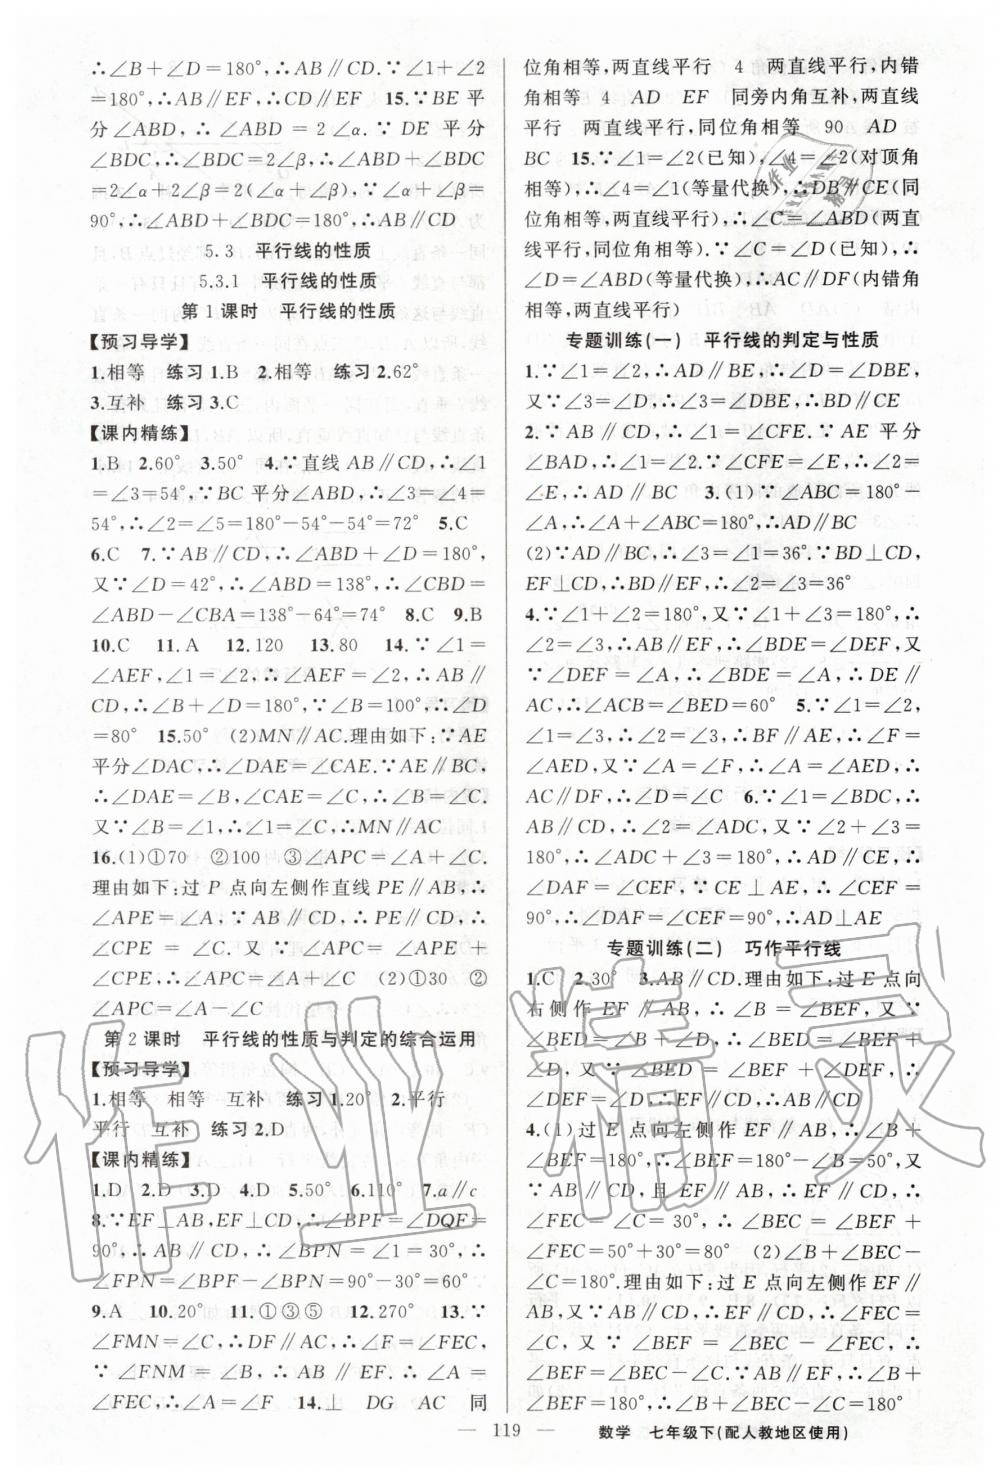 ∴∠B+∠D=180°,∴AB∥CD.∵∠1+∠2
=180°,∴AB∥EF,∴CD∥EF 15.∵BE平
分∠ABD,∴∠ABD=2∠α.∵DE平分
∠BDC,∴∠BDC=2∠β,∴∠ABD+∠BDC
=2∠α+2∠β=2(∠α+∠β).∵∠α+∠β=
90°,∴∠ABD+∠BDC=180°,∴AB∥CD
5.3 平行线的性质
5.3.1 平行线的性质
第1课时 平行线的性质
【预习导学】
1.相等 练习1.B 2.相等 练习2.62°
3.互补 练习3.C
【课内精练】
1.B 2.60° 3.50° 4.∵直线AB∥CD,∴∠1
=∠3=54°,∵BC平分∠ABD,∴∠3=∠4=
54°,∴∠2=∠5=180°-54°-54°=72° 5.C
6.C 7.∵AB∥CD,∴∠ABD+∠D=180°,
又∵∠D=42°,∴∠ABD=138°,∴∠CBD=
∠ABD-∠CBA=138°-64°=74° 8.C 9.B
10.C 11.A 12.120 13.80 14.∵∠1=
∠AEF,∠1=∠2,∴∠AEF=∠2,∴AB∥
CD,∴∠B+∠D=180°,∵∠B=100°,∴∠D
=80° 15.50° (2)MN∥AC.理由如下:∵AE
平分∠DAC,∴∠DAE=∠CAE.∵AE∥BC,
∴∠DAE=∠B,∠CAE=∠C,∴∠B=∠C.
又∵∠B=∠1,∴∠1=∠C,∴MN∥AC
16.(1)①70 ②100 ③∠APC=∠A+∠C.
理由如下:过P点向左侧作直线PE∥AB,∴
∠APE=∠A.∵AB∥CD,∴PE∥CD,∴
∠CPE=∠C.又∵∠APC=∠APE+
∠CPE,∴∠APC=∠A+∠C (2)①30 ②
∠A=∠APC+∠C
第2课时 平行线的性质与判定的综合运用
【预习导学】
1.相等 相等 互补 练习1.20° 2.平行
平行 互补 练习2.D
【课内精练】
1.D 2.D 3.D 4.D 5.50° 6.110° 7.a∥c
8.∵EF⊥AB,EF⊥CD,∴∠BPF=∠DQF=
90°,∴AB∥CD,∴∠BPN=∠1=30°,∴
∠FPN=∠BPF-∠BPN=90°-30°=60°
9.A 10.20° 11.①③⑤ 12.270° 13.∵
∠FMN=∠C,∴DF∥AC,∴∠F=∠FEC,
∵∠FNM=∠B,∴AB∥EF.∴∠A=
∠FEC,∴∠A=∠F 14.⊥ DG AC 同
位角相等,两直线平行 4 两直线平行,内错
角相等 4 AD EF 同旁内角互补,两直线
平行 两直线平行,同位角相等 90 AD
BC 15.∵∠1=∠2(已知),∠4=∠2(对顶角
相等),∴∠1=∠4(等量代换),∴DB∥CE(同
位角相等,两直线平行),∴∠C=∠ABD(两直
线平行,同位角相等).∵∠C=∠D(已知),∴
∠D=∠ABD(等量代换),∴AC∥DF(内错角
相等,两直线平行)
专题训练(一) 平行线的判定与性质
1.∵∠1=∠2,∴AD∥BE,∴∠D=∠DBE,
又∵∠3=∠D,∴∠3=∠DBE,∴BD∥CE
2.∵AB∥CD,∴∠1=∠CFE.∵AE平分
∠BAD,∴∠1=∠2.∵∠CFE=∠E,∴∠2=
∠E,∴AD∥BC 3.(1)∵∠ABC=180°-
∠A,∴∠A+∠ABC=180°,∴AD∥BC
(2)∵AD∥BC,∴∠3=∠1=36°.∵BD⊥CD,
EF⊥CD,∴BD∥EF,∴∠2=∠3=36°
4.∵∠1+∠2=180°,又∵∠1+∠3=180°,∴
∠2=∠3,∴AB∥EF,∴∠BDE=∠DEF,又
∵∠DEF=∠A,∴∠BDE=∠A,∴DE∥
AC,∴∠ACB=∠BED=60° 5.∵∠1=∠2,
∠1=∠3,∴∠2=∠3,∴BF∥AE,∴∠F=
∠AED,又∵∠A=∠F,∴∠A=∠AED,∴
AC∥DF,∴∠D=∠C 6.∵∠1=∠BDC,
∴AB∥CD,∴∠2=∠ADC,又∵∠2+∠3=
180°,∴∠ADC+∠3=180°,∴AD∥CE,∴
∠DAF=∠CEF,∵CE⊥AE,∴∠CEF=
90°,∴∠DAF=∠CEF=90°,∴AD⊥AE
专题训练(二) 巧作平行线
1.C 2.30° 3.AB∥CD.理由如下:过E点向
右侧作EF∥AB,∴∠B=∠BEF,又∵
∠BED=∠BEF+∠DEF=∠B+
∠D,又∵∠BED=∠BEF+∠DEF,∴
∠DEF=∠D,∴EF∥CD,∴AB∥CD
4.(1)过E点向左侧作EF∥AB,∴∠B+
∠BEF=180°,∴∠BEF=180°-∠B=50°.又
∵AB∥CD,且EF∥AB,∴EF∥CD,∴
∠FEC=∠C=30°,∴∠BEC=∠BEF+
∠FEC=50°+30°=80° (2)∠B+∠BEC-
∠C=180°.理由如下:过E点向左侧作EF∥
AB,又∵AB∥CD,∴EF∥CD,∴∠FEC=
∠C,又∵∠BEF=∠BEC-∠FEC,∴
∠BEF=∠BEC-∠C.∵AB∥EF,∴∠B+
∠BEF=180°,∴∠B+∠BEC-∠C=180°
119 数学 七年级下(配人教地区使用)
作业精灵